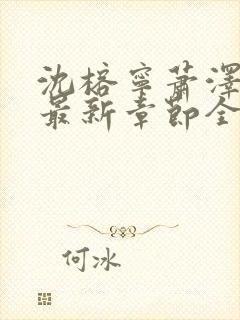 沈榕寧萧澤
最新章節全
何冰